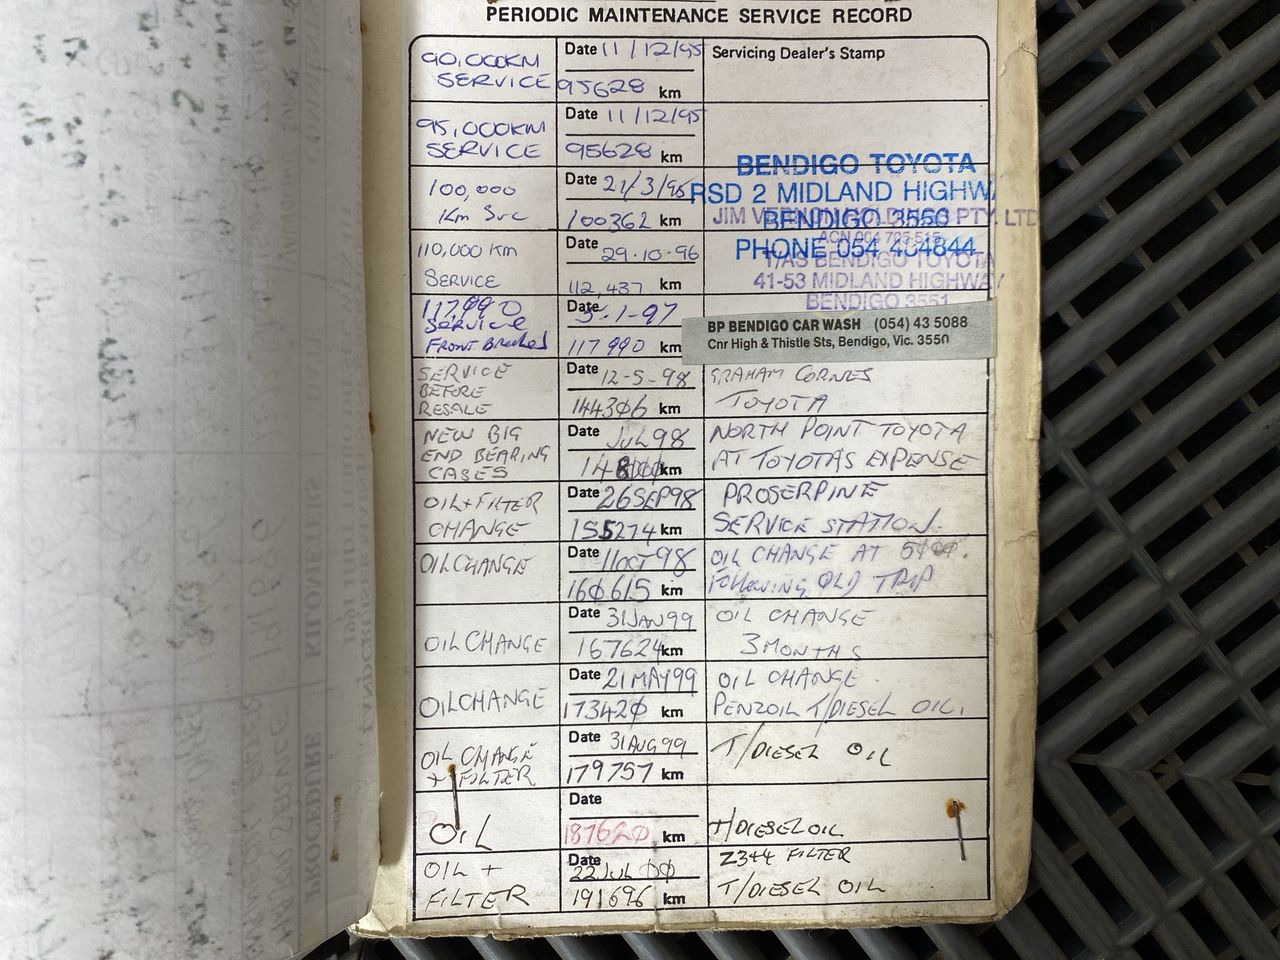 PERIODIC MAINTENANCE SERVICE RECORD
90,000KM
SERVICE
Date 11/12/95
95628 km
Servicing Dealer's Stamp
95,000KM
SERVICE
Date 11/12/95
95628 km
100,000
Km Svc
Date 21/3/96
100362 km
BENDIGO TOYOTA
RSD 2 MIDLAND HIGHWA
BENDIGO 3550
PHONE 054 404844
110,000 Km
SERVICE
Date 29.10-96
112,437 km
PTY. LTD
T/AS BENDIGO TOYOTA
41-53 MIDLAND HIGHWAY
BENDIGO 3551
117,990
SERVICE
FRONT Brakes
Date 5-1-97
117990 km
BP BENDIGO CAR WASH (054) 43 5088
Cnr High & Thistle Sts, Bendigo, Vic. 3550
SERVICE
BEFORE
RESALE
Date 12-5-98
144306 km
GRAHAM CORNES
TOYOTA
NEW BIG
END BEARING
CASES
Date JUL 98
148000 km
NORTH POINT TOYOTA
AT TOYOTAS EXPENSE
OIL+FILTER
CHANGE
Date 26SEP98
155274 km
PROSERPINE
SERVICE STATION.
OILCHANGE
Date 11OCT98
160615 km
OIL CHANGE AT
FOLLOWING QLD TRIP
OILCHANGE
Date 31JAN99
167624 km
OIL CHANGE
3 MONTHS
OILCHANGE
Date 21MAY99
173420 km
OIL CHANGE
PENZOIL T/DIESEL OIL.
OIL CHANGE
+ FILTER
Date 31AUG99
179757 km
T/DIESEL OIL
OIL
Date
187620 km
T/DIESEL OIL
OIL +
FILTER
Date 22JUL00
191696 km
Z344 FILTER
T/DIESEL OIL